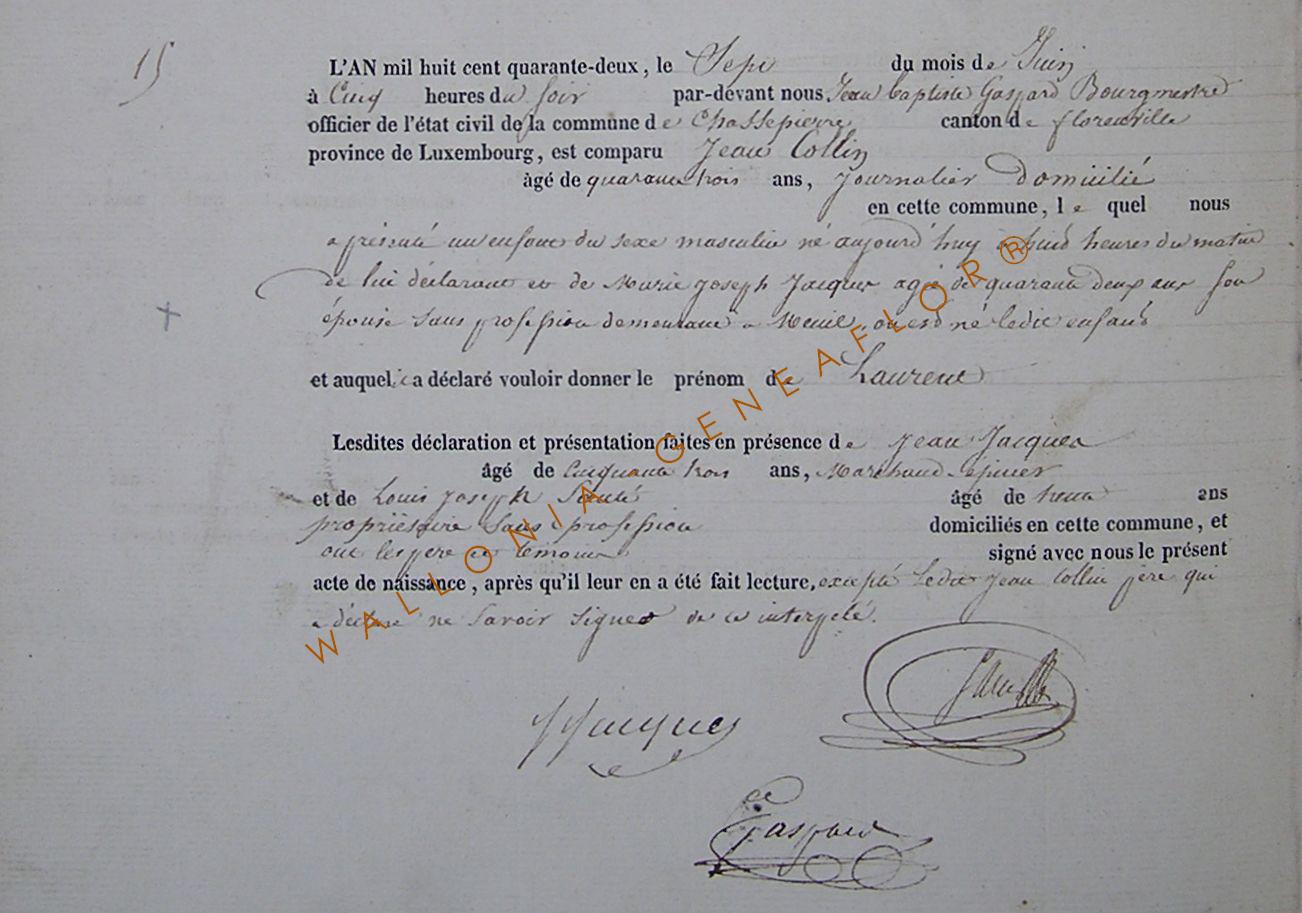 15
L'AN mil huit cent quarante-deux, le Sept du mois de Juin
à Cinq heures du soir par-devant nous Jean Baptiste Gaspard Bourgmestre
officier de l'état civil de la commune de Chassepierre canton de florenville
province de Luxembourg, est comparu Jean Collin
âgé de quarante trois ans, Journalier Domicilié
en cette commune, le quel nous
a présenté un enfant du sexe masculin né aujourd'huy à huit heures du matin
de lui déclarant et de Marie Joseph Jacques agée de quarante deux ans son
épouse sans profession demeurant a né ledit enfant
et auquel il a déclaré vouloir donner le prénom de Laurent
Lesdites déclaration et présentation faites en présence de Jean Jacques
âgé de Cinquante trois ans, Marchand épicier
et de Louis Joseph âgé de trente ans
propriétaire sans profession domiciliés en cette commune, et
ont les père et témoins signé avec nous le présent
acte de naissance, après qu'il leur en a été fait lecture, excepté ledit Jean Collin père qui
a déclaré ne savoir signer de ce interpelé.
JJacques
Gaspard
WALLONIA GENEAFLOR®